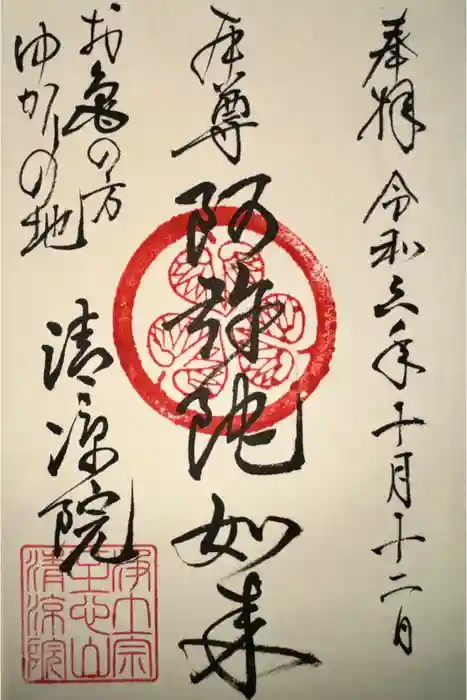 奉拝 令和六年十月十二月
本尊
阿弥陀如来
お亀の方
ゆかりの地
清凉院
浄土宗
清涼院